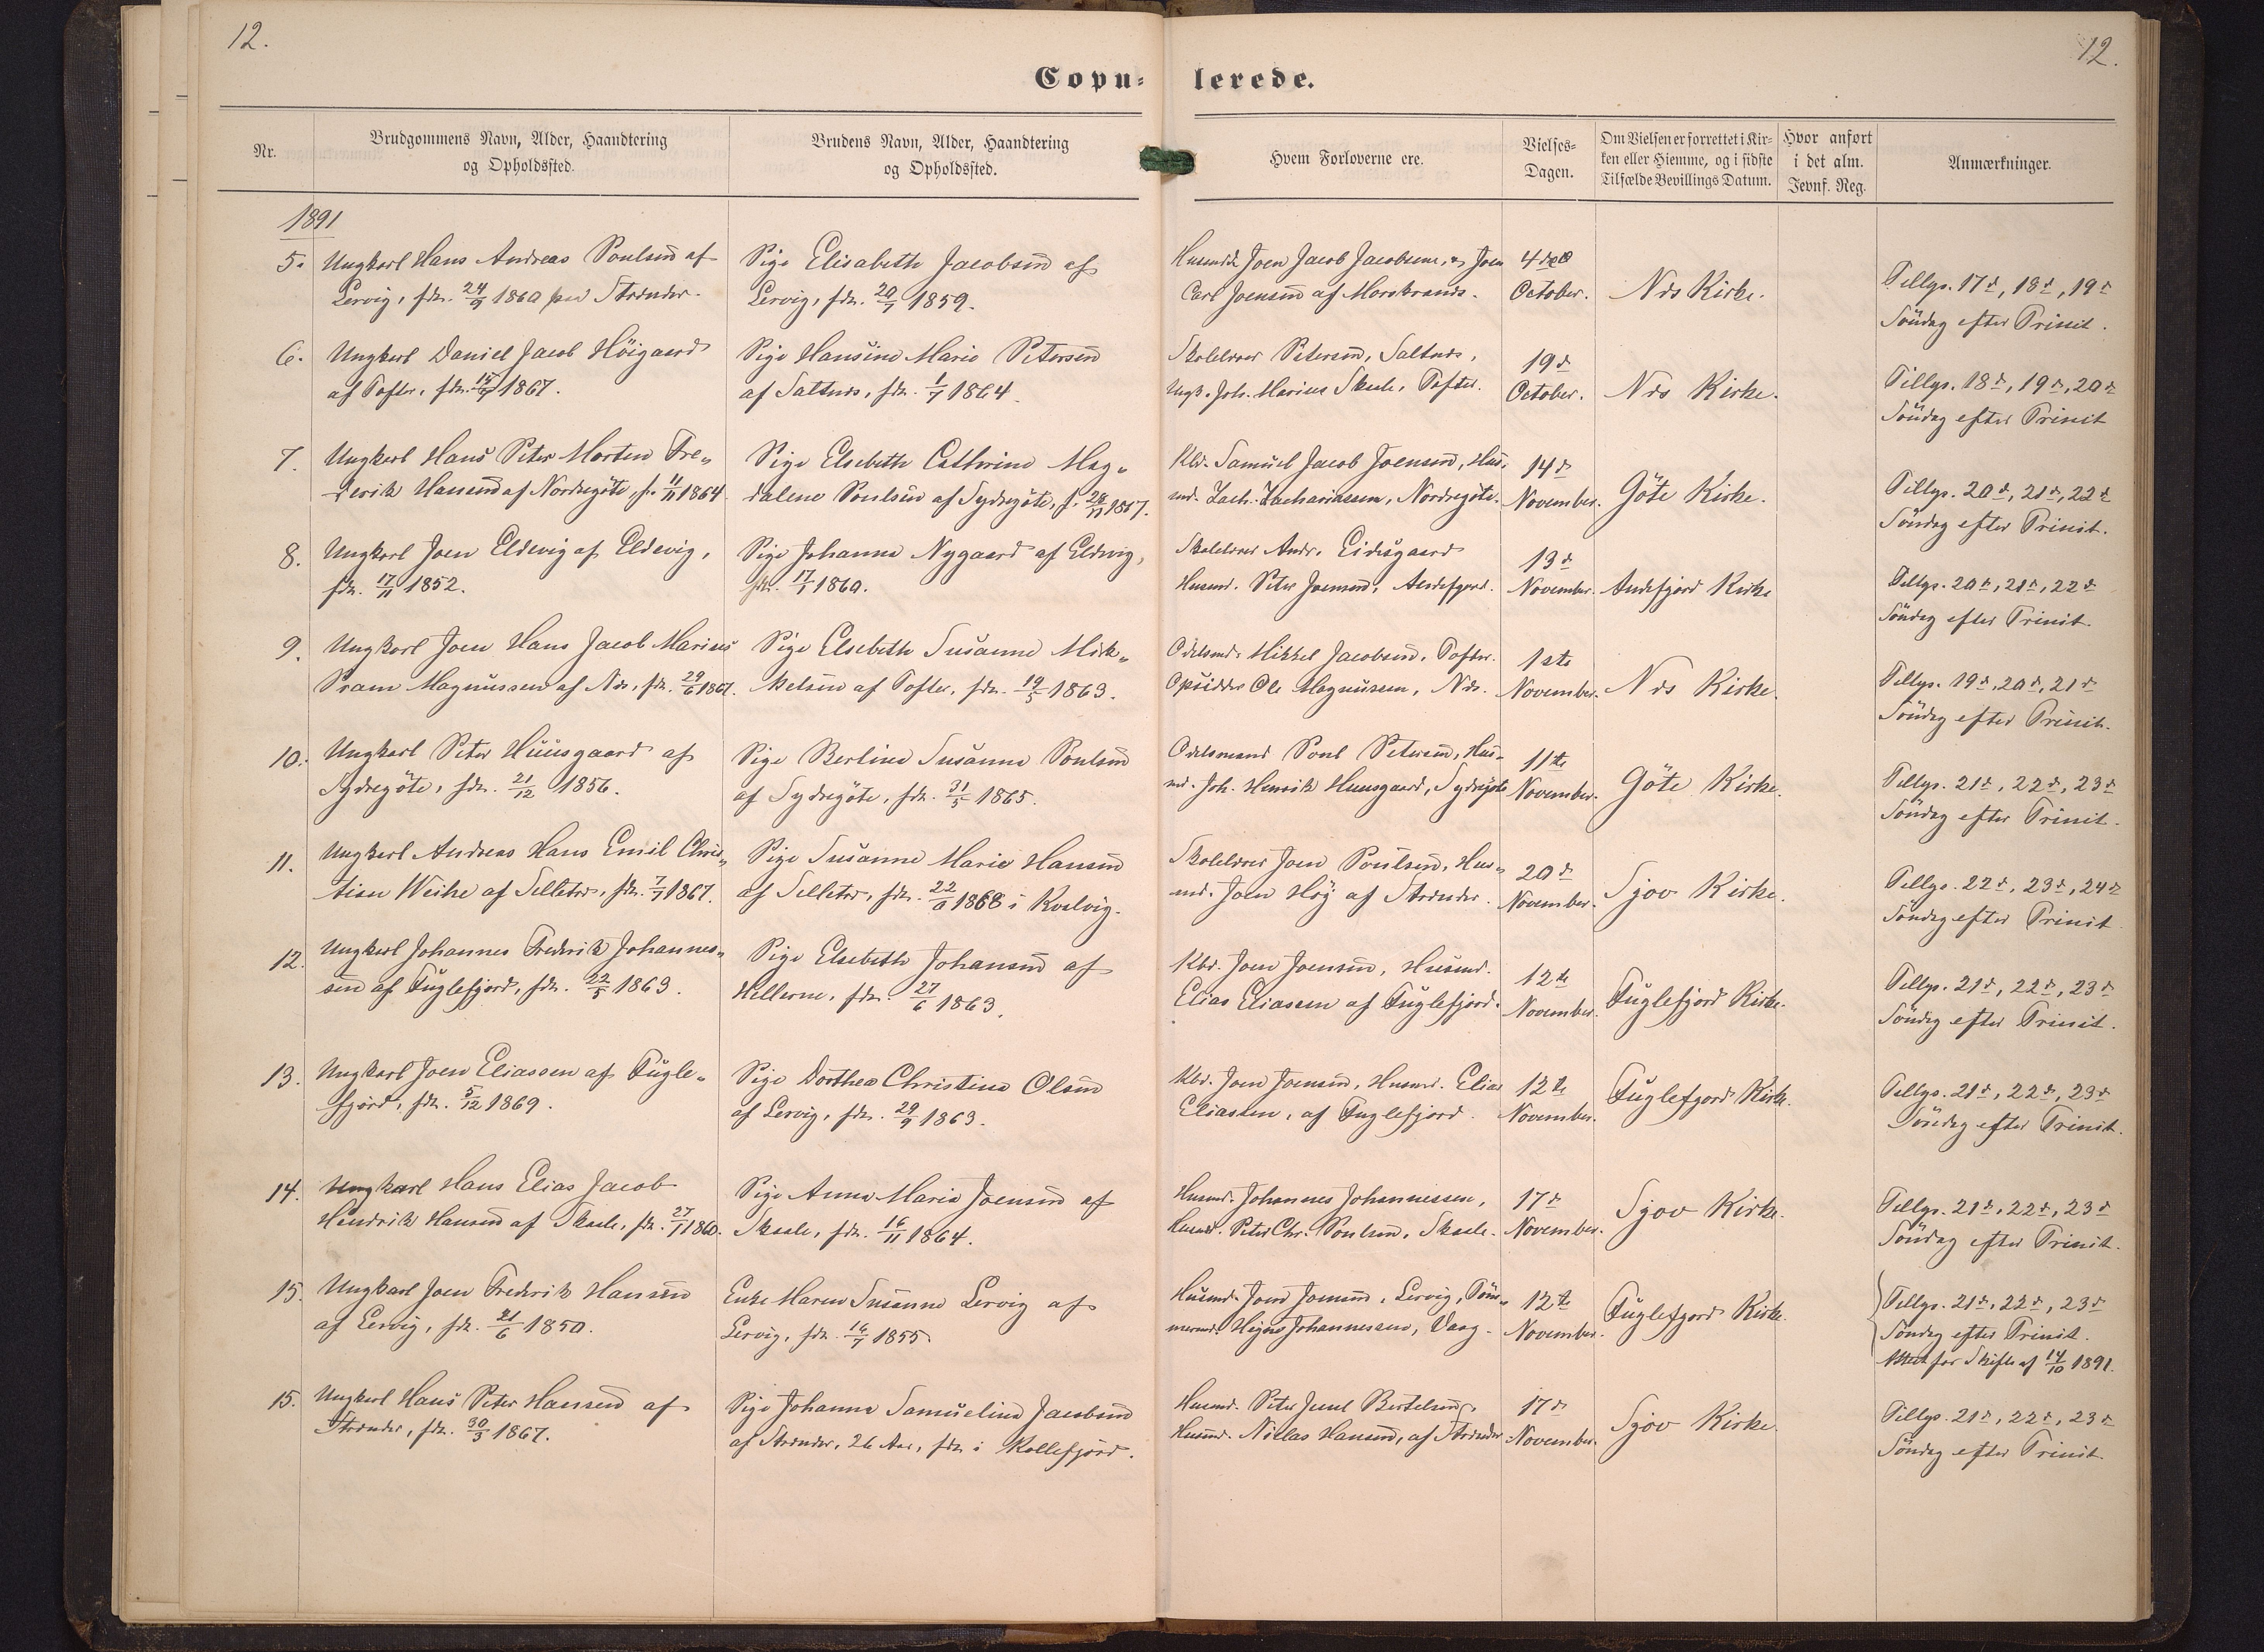 12.
12.
Copu-
lerede.
Nr.
Brudgommens Navn, Alder, Haandtering
og Opholdssted.
Brudens Navn, Alder, Haandtering
og Opholdssted.
Hvem Forloverne ere.
Vielses-
Dagen.
Om Vielsen er forrettet i Kir-
ken eller Hiemme, og i sidste
Tilfælde Bevillings Datum.
Hvor anført
i det alm.
Jevnf. Reg.
Anmærkninger.
1891
5. Ungkarl Hans Andreas Poulsen af
Lervig, fdt. 24/9 1860 paa Strænder.
Pige Elisabeth Jacobsen af
Lervig, fdt. 20/7 1859.
Husmd. Joen Jacob Jacobsen, og Joen
Carl Joensen af Morskranes.
4de
October.
Næs Kirke.
Tillys. 17d, 18d, 19d
Söndag efter Trinit.
6. Ungkarl Daniel Jacob Höigaard
af Tofter, fdt. 1867.
Pige Hansine Marie Petersen
af Saltnæs, fdt. 1/7 1864.
Skolelærer Petersen, Saltnæs,
Ungk. Joh. Marius Skaale, Tofter.
19d
October.
Næs Kirke.
Tillys. 18d, 19d, 20d
Söndag efter Trinit
7. Ungkarl Hans Peter Morten Fre-
derik Hansen af Nordregöte, f. 11/11 1864
Pige Elsebeth Cathrine Mag-
dalene Poulsen af Sydregöte, f. 28/11 1867.
Kbd. Samuel Jacob Joensen, Hus-
md. Zach. Zachariassen, Nordregöte.
14d
November.
Göte Kirke.
Tillys. 20d, 21d, 22d
Söndag efter Trinit.
8. Ungkarl Joen Eldevig af Eldevig,
fdt. 17/11 1852.
Pige Johanne Nygaard af Eldevig,
fdt. 17/1 1860.
Skolelærer Andr. Eidesgaard
Husmd. Peter Joensen, Andefjord.
13d
November.
Andefjord Kirke
Tillys. 20d, 21d, 22d
Söndag efter Trinit.
9. Ungkarl Joen Hans Jacob Marius
Pram Magnussen af Næs, fdt. 29/6 1867.
Pige Elsebeth Susanne Mik-
kelsen af Tofter, fdt. 19/5 1863.
Odelsmd. Mikkel Jacobsen, Tofter.
Opsidder Ole Magnussen, Næs.
1ste
November.
Næs Kirke.
Tillys. 19d, 20d, 21d
Söndag efter Trinit.
10. Ungkarl Peter Huusgaard af
Sydregöte, fdt. 21/12 1856.
Pige Berline Susanne Poulsen
af Sydregöte, fdt. 31/5 1865.
Odelsmand Poul Petersen, Hus-
md. Joh. Henrik Huusgaard, Sydregöte
11te
November.
Göte Kirke.
Tillys. 21d, 22d, 23d
Söndag efter Trinit.
11. Ungkarl Andreas Hans Emil Chris-
tian Weihe af Selletræ, fdt. 7/7 1867.
Pige Susanne Marie Hansen
af Selletræ, fdt. 1868 i Kvalvig.
Skolelærer Joen Poulsen, Hus-
md. Joen Höj af Strænder.
20d
November.
Sjov Kirke.
Tillys. 22d, 23d, 24d
Söndag efter Trinit.
12. Ungkarl Johannes Frederik Johannes-
sen af Fuglefjord, fdt. 22/5 1863.
Pige Elsebeth Johansen af
Hellerne, fdt. 27/6 1863.
Kbd. Joen Joensen, Husmd.
Elias Eliasen af Fuglefjord.
12te
November.
Fuglefjord Kirke.
Tillys. 21d, 22d, 23d
Söndag efter Trinit.
13. Ungkarl Joen Eliassen af Fugle-
fjord, fdt. 5/12 1869.
Pige Dorthea Christine Olsen
af Lervig, fdt. 29/9 1863.
Kbd. Joen Joensen, Husmd. Elias
Eliassen, af Fuglefjord.
12te
November.
Fuglefjord Kirke.
Tillys. 21d, 22d, 23d
Söndag efter Trinit.
14. Ungkarl Hans Elias Jacob
Hendrik Hansen af Skaale, fdt. 27/1 1860.
Pige Anne Marie Joensen af
Skaale, fdt. 16/11 1864.
Husmd. Johannes Johannessen,
Husmd. Peter Chr. Poulsen, Skaale.
17d
November.
Sjov Kirke.
Tillys. 21d, 22d, 23d
Söndag efter Trinit.
15. Ungkarl Joen Frederik Hansen
af Lervig, fdt. 21/6 1850.
Enke Maren Susanne Lervig af
Lervig, fdt. 16/7 1855
Husmd. Joen Joensen, Lervig, Töm-
mermd. Johannessen, Vaag.
12te
November.
Fuglefjord Kirke.
Tillys. 21d, 22d, 23d
Söndag efter Trinit.
Attest for Skifte af 14/10 1891.
15. Ungkarl Hans Peter Hansen af
Strænder, fdt. 30/3 1867.
Pige Johanne Samueline Jacobsen
af Strænder, 26 Aar, fdt. i Kollefjord.
Husmd. Peter Juul Bertelsen,
Husmd. Niclas Hansen, af Strænder
17d
November.
Sjov Kirke.
Tillys. 21d, 22d, 23d
Söndag efter Trinit.